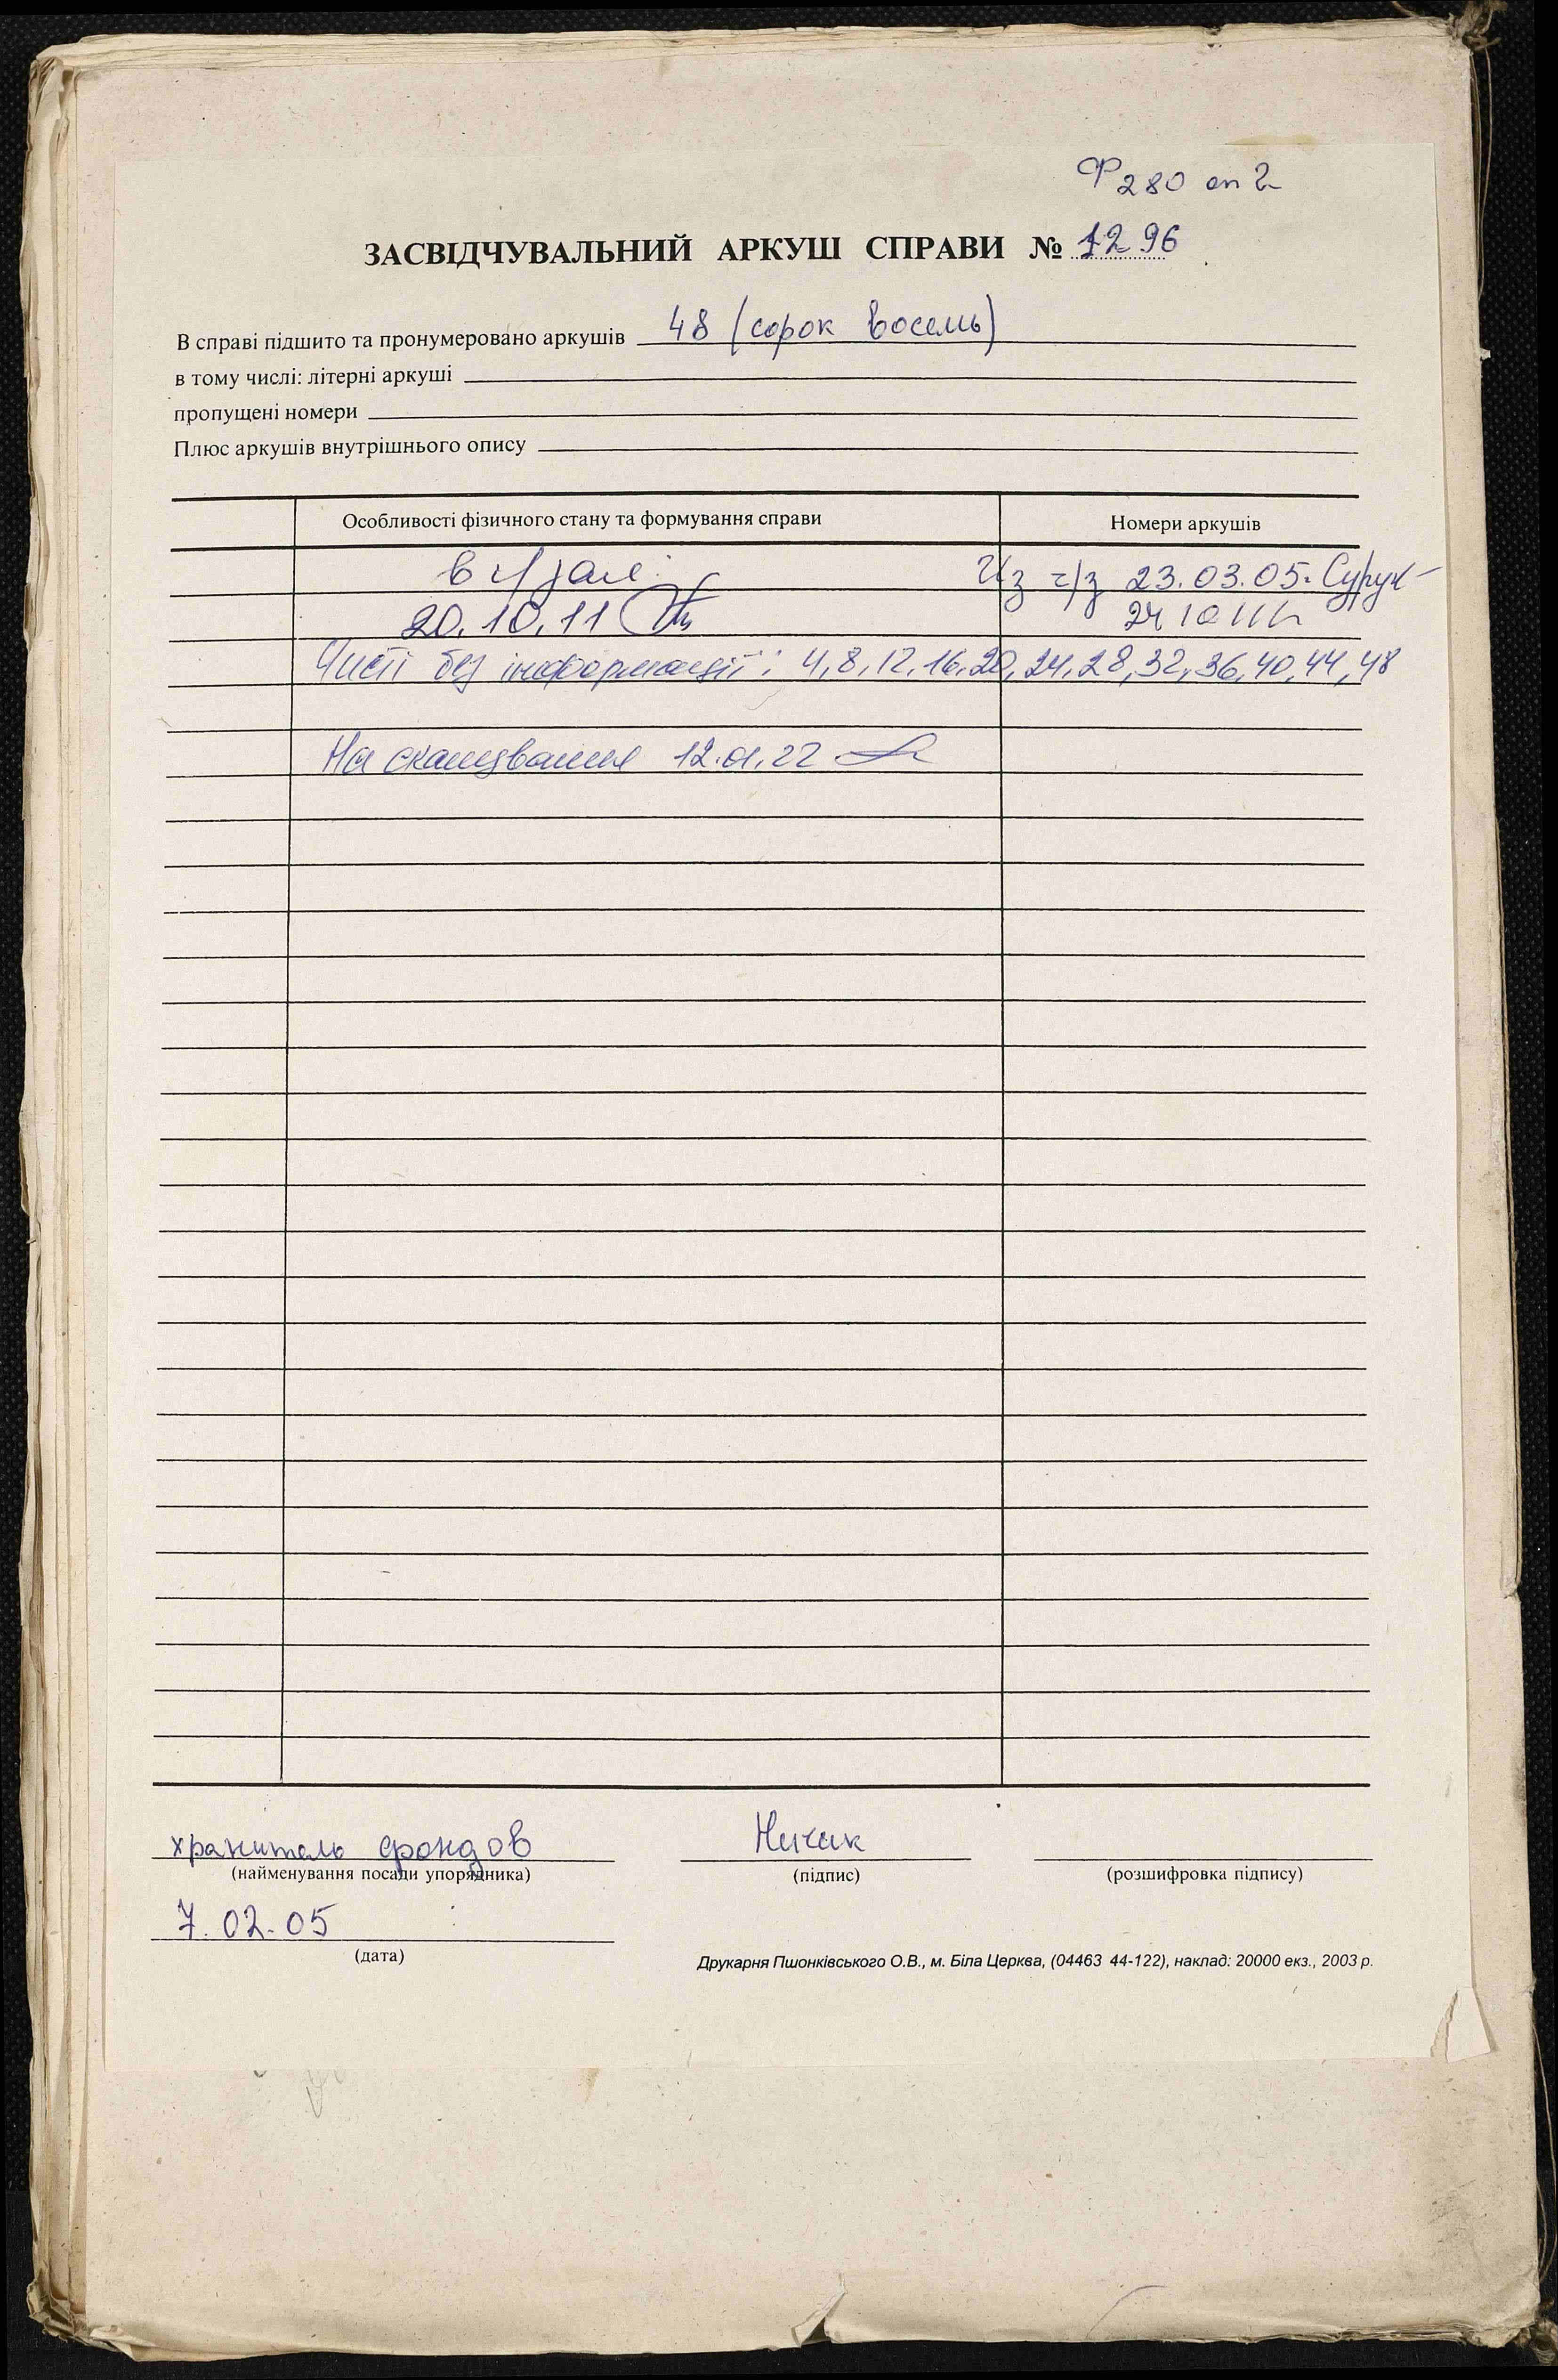 Ф 280 оп 2
ЗАСВІДЧУВАЛЬНИЙ АРКУШ СПРАВИ № 1296
В справі підшито та пронумеровано аркушів 48 (сорок восемь)
в тому числі: літерні аркуші
пропущені номери
Плюс аркушів внутрішнього опису
Особливості фізичного стану та формування справи Номери аркушів
в ч/зале Из ч/з 23.03.05.
20.10.11 24 10 11
Чисті без інформації: 4, 8, 12, 16, 20, 24, 28, 32, 36, 40, 44, 48
На сканування 12.01.22
хранитель фондов Ничик
(найменування посади упорядника) (підпис) (розшифровка підпису)
7.02.05
(дата)
Друкарня Пшонківського О.В., м. Біла Церква, (04463 44-122), наклад: 20000 екз., 2003 р.